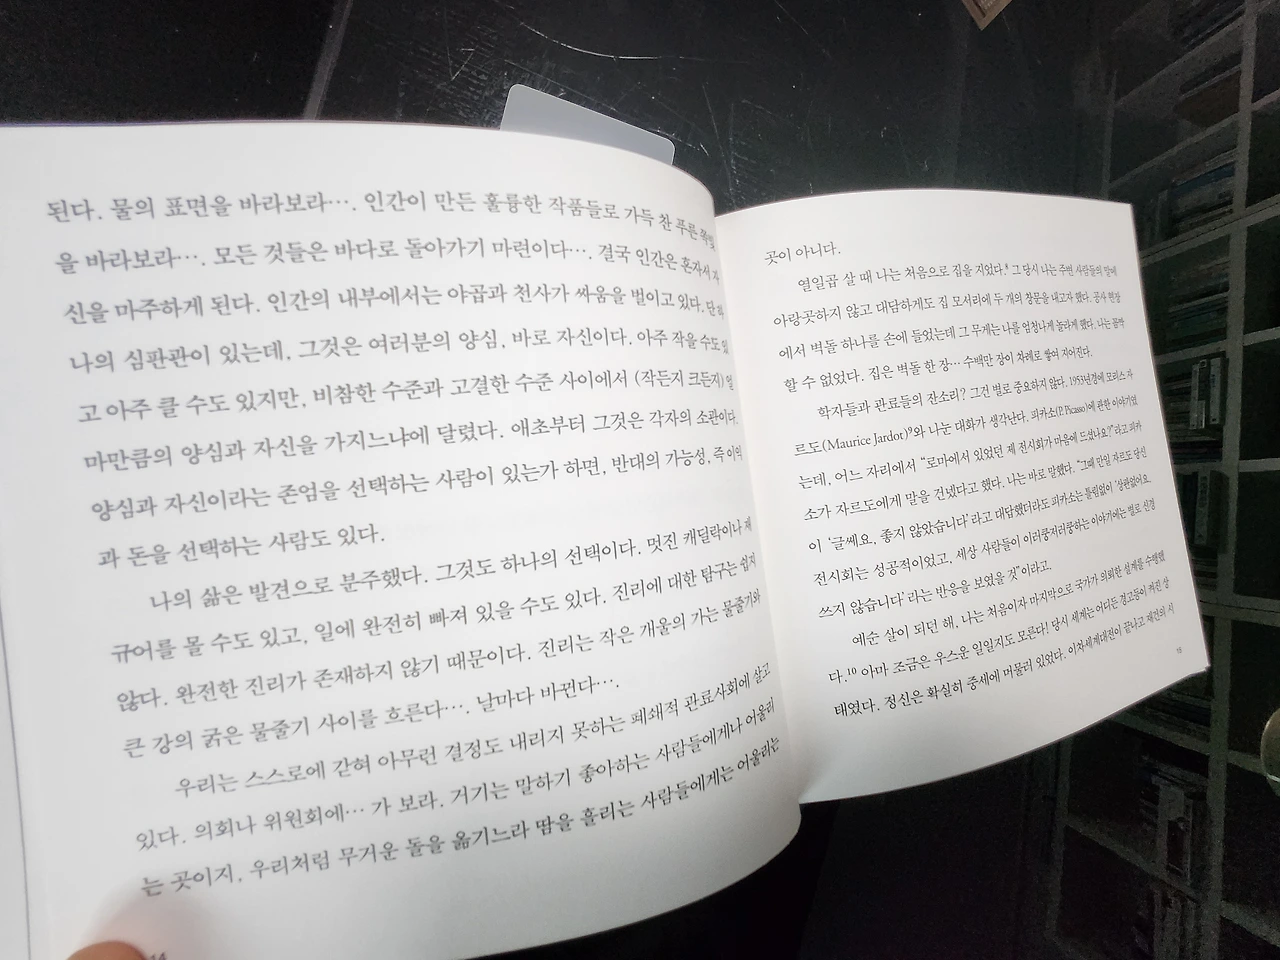 된다. 물의 표면을 바라보라…. 인간이 만든 훌륭한 작품들로 가득 찬 푸른
을 바라보라…. 모든 것들은 바다로 돌아가기 마련이다…. 결국 인간은 혼자서 자
신을 마주하게 된다. 인간의 내부에서는 야곱과 천사가 싸움을 벌이고 있다. 단 하
나의 심판관이 있는데, 그것은 여러분의 양심, 바로 자신이다. 아주 작을 수도 있
고 아주 클 수도 있지만, 비참한 수준과 고결한 수준 사이에서 (작든지 크든지) 얼
마만큼의 양심과 자신을 가지느냐에 달렸다. 애초부터 그것은 각자의 소관이다.
양심과 자신이라는 존엄을 선택하는 사람이 있는가 하면, 반대의 가능성, 즉 이익
과 돈을 선택하는 사람도 있다.
나의 삶은 발견으로 분주했다. 그것도 하나의 선택이다. 멋진 캐딜락이나 재
규어를 몰 수도 있고, 일에 완전히 빠져 있을 수도 있다. 진리에 대한 탐구는 쉽지
않다. 완전한 진리가 존재하지 않기 때문이다. 진리는 작은 개울의 가는 물줄기와
큰 강의 굵은 물줄기 사이를 흐른다…. 날마다 바뀐다….
우리는 스스로에 갇혀 아무런 결정도 내리지 못하는 폐쇄적 관료사회에 살고
있다. 의회나 위원회에… 가 보라. 거기는 말하기 좋아하는 사람들에게나 어울리
는 곳이지, 우리처럼 무거운 돌을 옮기느라 땀을 흘리는 사람들에게는 어울리는
14
곳이 아니다.
열일곱 살 때 나는 처음으로 집을 지었다.⁸ 그 당시 나는 주변 사람들의 말에
아랑곳하지 않고 대담하게도 집 모서리에 두 개의 창문을 내고자 했다. 공사 현장
에서 벽돌 하나를 손에 들었는데 그 무게는 나를 엄청나게 놀라게 했다. 나는 꼼짝
할 수 없었다. 집은 벽돌 한 장… 수백만 장이 차례로 쌓여 지어진다.
학자들과 관료들의 잔소리? 그건 별로 중요하지 않다. 1953년경에 모리스 자
르도(Maurice Jardot)⁹와 나눈 대화가 생각난다. 피카소(P. Picasso)에 관한 이야기였
는데, 어느 자리에서 “로마에서 있었던 제 전시회가 마음에 드셨나요?”라고 피카
소가 자르도에게 말을 건넸다고 했다. 나는 바로 말했다. “그때 만일 자르도 당신
이 ‘글쎄요, 좋지 않았습니다’라고 대답했더라도 피카소는 틀림없이 ‘상관없어요.
전시회는 성공적이었고, 세상 사람들이 이러쿵저러쿵하는 이야기에는 별로 신경
쓰지 않습니다’라는 반응을 보였을 것”이라고.
예순 살이 되던 해, 나는 처음이자 마지막으로 국가가 의뢰한 설계를 수행했
다.¹⁰ 아마 조금은 우스운 일일지도 모른다! 당시 세계는 어디든 경고등이 켜진 상
태였다. 정신은 확실히 중세에 머물러 있었다. 이차세계대전이 끝나고 재건의 시